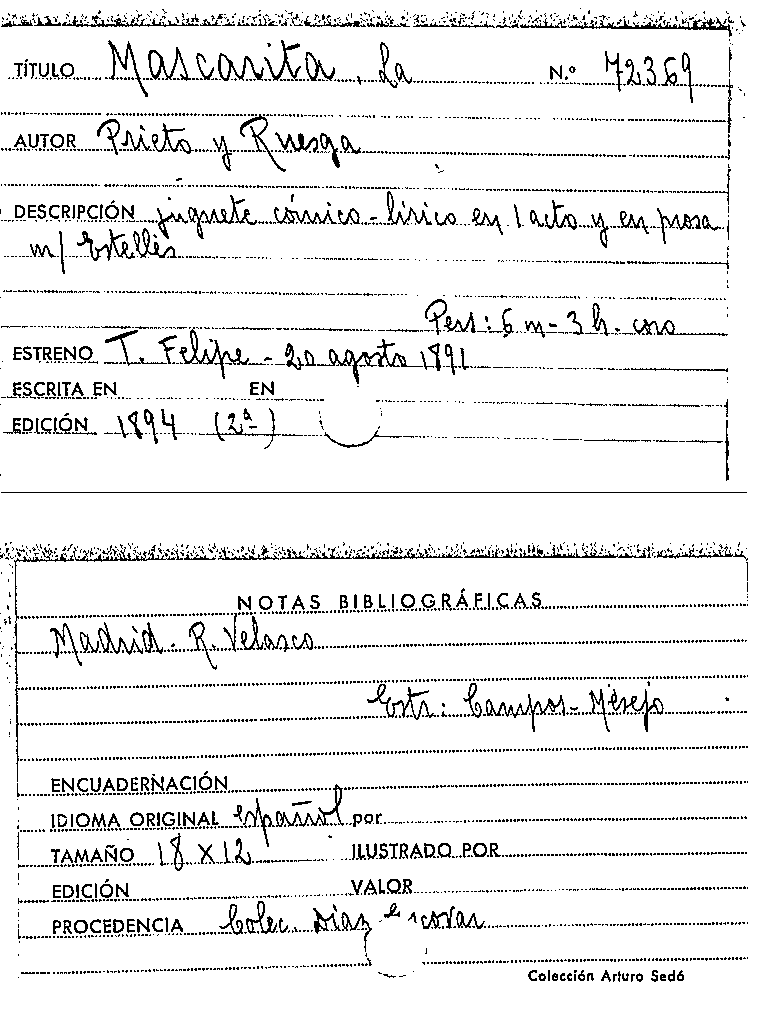 TÍTULO Mascarita, La N.º 72369
AUTOR Prieto y Ruesga
DESCRIPCIÓN juguete cómico-lírico en 1 acto y en prosa
m/ Estellés
Pers: 6 m - 3 h. coro
ESTRENO T. Felipe - 20 agosto 1891
ESCRITA EN EN
EDICIÓN 1894 (2ª)
NOTAS BIBLIOGRÁFICAS
Madrid - R. Velasco
Estr: Campos - Mesejo
ENCUADERNACIÓN
IDIOMA ORIGINAL español por
TAMAÑO 18 X 12 ILUSTRADO POR
EDICIÓN VALOR
PROCEDENCIA Colec. Díaz Escovar
Colección Arturo Sedó